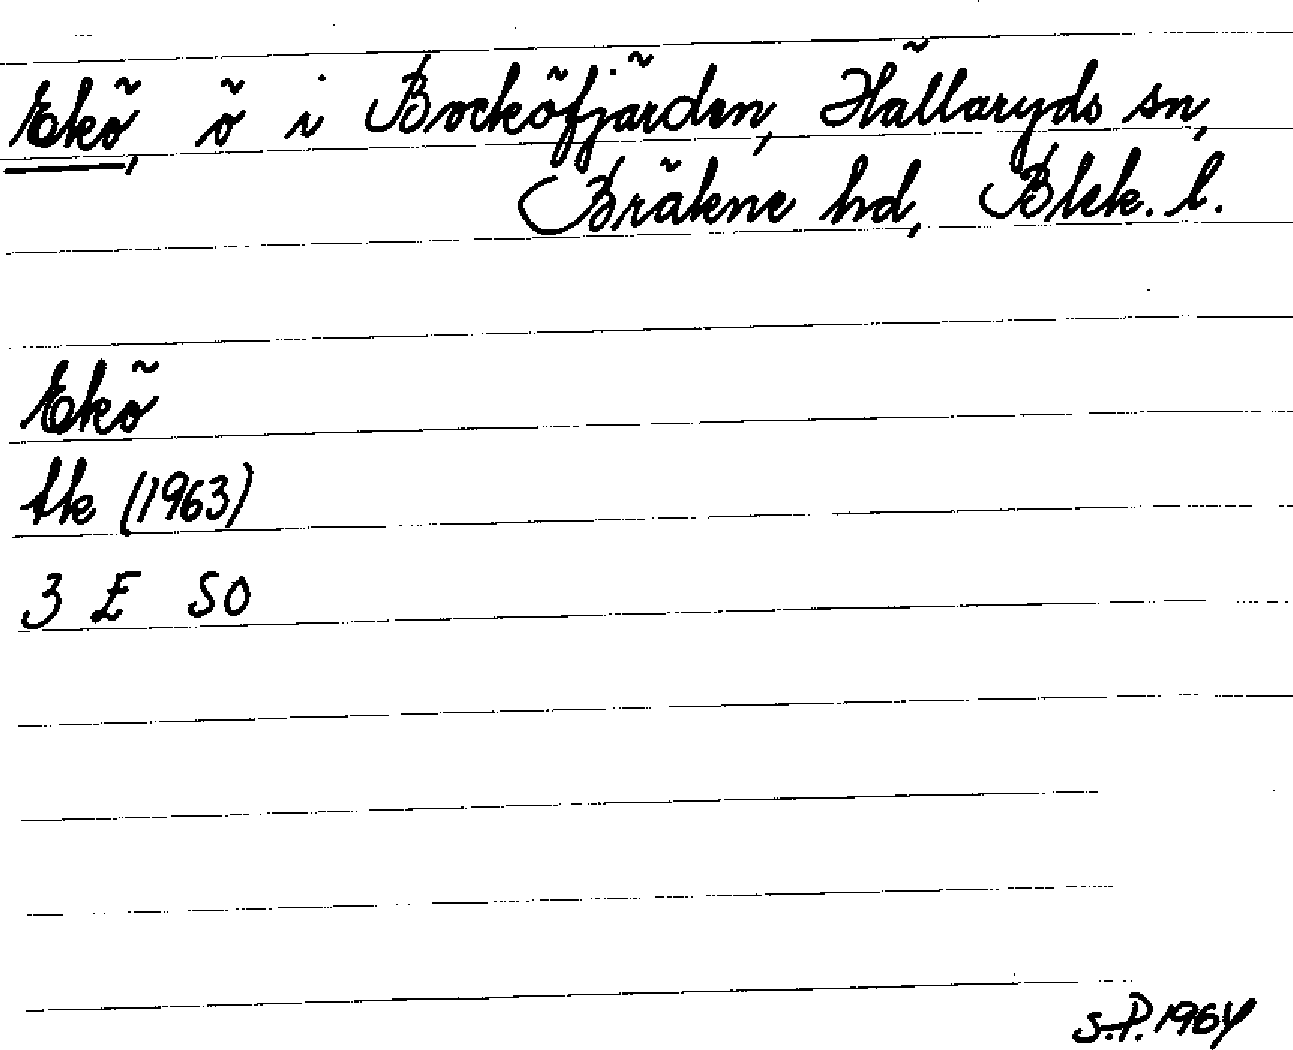 Ekö, ö i Bocköfjärden, Hällaryds sn,
Bräkne hd, Blek. l.
Ekö
tk (1963)
3 E SO
S.P. 1964